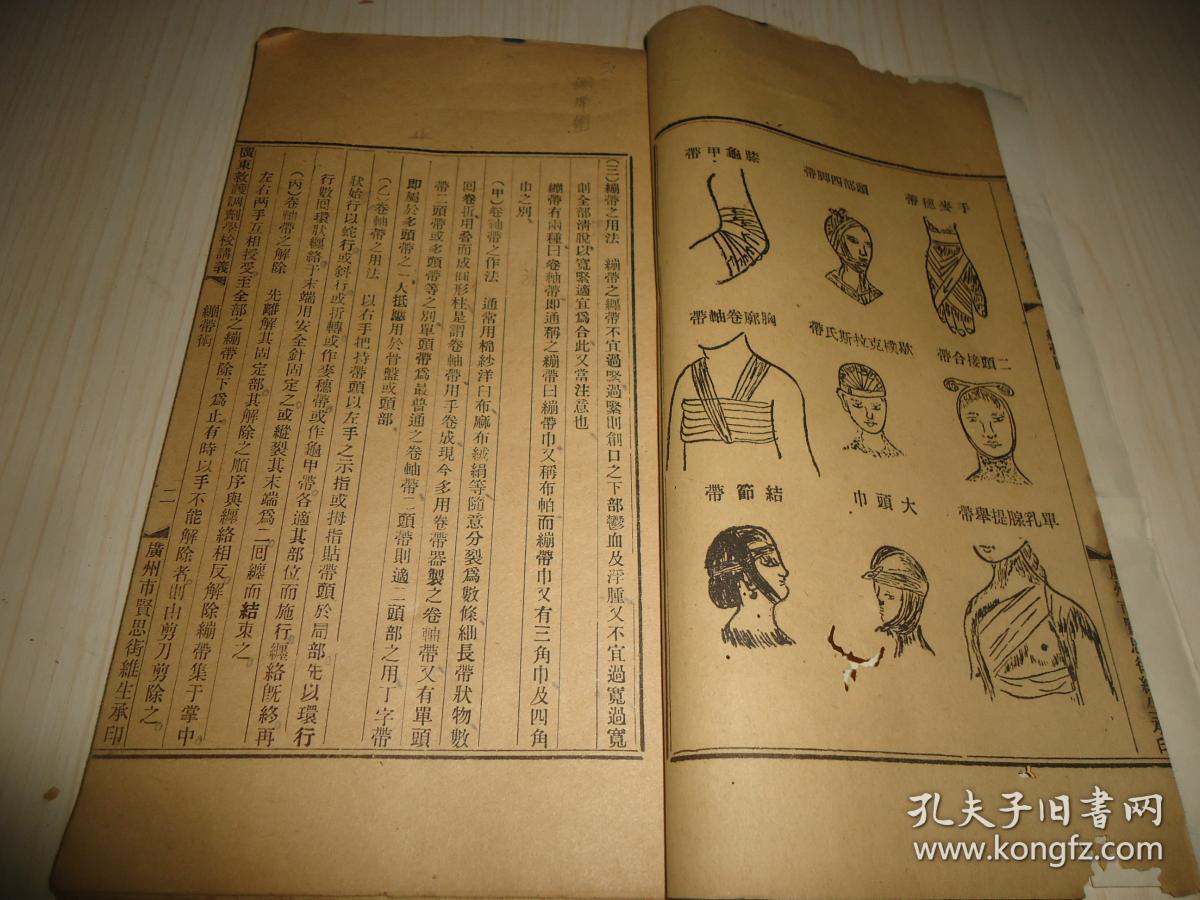 手麥穗帶
頭部四脚帶
膝龜甲帶
二頭接合帶
歇樸克拉斯氏帶
胸廓卷軸帶
單乳腺提舉帶
大頭巾
結節帶
(三)繃帶之用法　繃帶之纒帶不宜過緊過緊則創口之下部鬱血及浮腫又不宜過寬過寬
則全部淸脫以寬緊適宜爲合此又當注意也
繃帶有兩種曰卷軸帶即通稱之繃帶曰繃帶巾又稱布帕而繃帶巾又有三角巾及四角
巾之別
(甲)卷軸帶之作法　通常用棉紗洋白布麻布絨絹等隨意分裂爲數條細長帶狀物數
回卷折用叠而成圓形柱是謂卷軸帶用手卷成現今多用卷帶器製之卷軸帶又有單頭
帶二頭帶或多頭帶等之別單頭帶爲最普通之卷軸帶二頭帶則適二頭部之用丁字帶
即屬於多頭帶之一大抵驅用於骨盤或頭部
(乙)卷軸帶之用法　以右手把持帶頭以左手之示指或拇指貼帶頭於局部先以環行
狀始行以蛇行。或斜行或折轉或作麥穗帶或作龜甲帶。各適其部位而施行。纒絡旣終再
行數回環狀纒絡于末端用安全針固定之或縱裂其末端爲二回纒而結束之。
(丙)卷軸帶之解除　先離解其固定部其解除之順序與纒絡相反。解除繃帶集于掌中。
左右两手互相授受。至全部之繃帶除下爲止有時以手不能解除者。則由剪刀剪除之。
廣東救護調劑學校講義　繃帶術　二　廣州市賢思街維生承印
孔夫子旧书网
www.kongfz.com